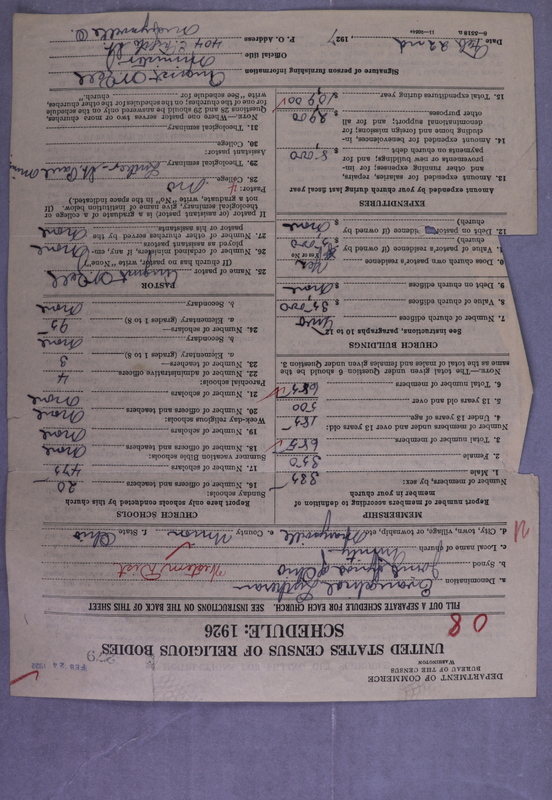 DEPARTMENT OF COMMERCE
BUREAU OF THE CENSUS
WASHINGTON
UNITED STATES CENSUS OF RELIGIOUS BODIES
SCHEDULE: 1926
FILL OUT A SEPARATE SCHEDULE FOR EACH CHURCH. SEE INSTRUCTIONS ON THE BACK OF THIS SHEET
a. Denomination Evangelical Lutheran
b. Synod Joint Synod of Ohio Western Dist
c. Local name of church Trinity
d. City, town, village, or township, etc. Marysville e. County Union f. State Ohio
MEMBERSHIP
Report number of members according to definition of
member in your church
Number of members, by sex:
1. Male 335
2. Female 350
3. Total number of members 685
Number of members under and over 13 years old:
4. Under 13 years of age 185
5. 13 years old and over 500
6. Total number of members 685
NOTE.—The total given under Question 6 should be the
same as the total of males and females given under Question 3.
CHURCH BUILDINGS
See instructions, paragraphs 10 to 12
7. Number of church edifices
8. Value of church edifices $ 35,000
9. Debt on church edifices $ None
Does church own pastor's residence Yes
Yes or No
Value of pastor's residence (if owned by
church) $
12. Debt on pastor's residence (if owned by
church) $ None
EXPENDITURES
Amount expended by your church during last fiscal year
13. Amount expended for salaries, repairs,
and other running expenses; for im-
provements or new building; and for
payments on church debt $ 8,000
14. Amount expended for benevolences, in-
cluding home and foreign missions; for
denominational support; and for all
other purposes $ 2900
15. Total expenditures during year $ 10,900
CHURCH SCHOOLS
Report here only schools conducted by this church
Sunday schools:
16. Number of officers and teachers 20
17. Number of scholars 475
Summer vacation Bible schools:
18. Number of officers and teachers None
19. Number of scholars None
Week-day religious schools:
20. Number of officers and teachers None
21. Number of scholars None
Parochial schools:
22. Number of administrative officers 4
23. Number of teachers—
a. Elementary (grades 1 to 8) 3
b. Secondary None
24. Number of scholars—
a. Elementary (grades 1 to 8) 95
b. Secondary None
PASTOR
25. Name of pastor August
(If church has no pastor, write "None")
26. Number of ordained ministers, if any, em-
ployed as assistants None
27. Number of other churches served by the
pastor or his assistants None
If pastor or assistant pastor is a graduate of a college or
theological seminary, give name of institution below. (If
not a graduate, write "No" in the space indicated.)
Pastor:
28. College No
29. Theological seminary Luther - St. Paul Minn
Assistant pastor:
30. College
31. Theological seminary
NOTE.—Where one pastor serves two or more churches,
Questions 28 and 29 should be answered only on the schedule
for one of the churches; on the schedules for the other churches,
write "See schedule for church."
Signature of person furnishing information August
Official title Minister
P. O. Address 404 E. Fifth St.
Marysville O.
Date Feb 22nd 1927